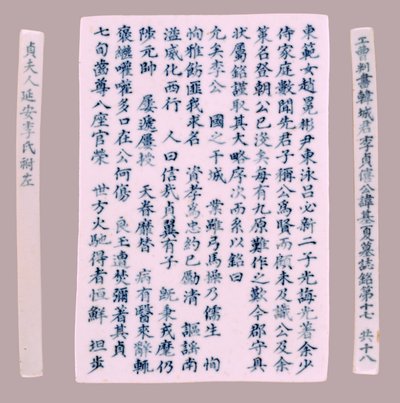 工曹判書韓城君李貞僖公諱基夏墓誌銘第十七 共十八
東範女趙冕彬尹東泳呂必新二子光誨光著余少
侍家庭數聞先君子稱公爲賢而顧未及識公及余
策名登朝公已沒矣每有九原難作之歎今郡守具
狀屬銘謹取其大略序次而系以銘曰
允矣李公 國之干城 業雖弓馬操乃儒生 恂
恂雅飭匪我求名 資孝爲忠約己勵清 謳謠南
溢威化西行 人曰信哉貞翼有子 旣秉戎麾仍
陞元帥 屢遞屢授 天眷靡替 病有醫來辭輒
褒繼嚾嚾多口在公何傷 良玉遭焚彌著其貞
七旬齒尊八座官榮 世方火馳得者恒鮮 坦步
貞夫人延安李氏祔左